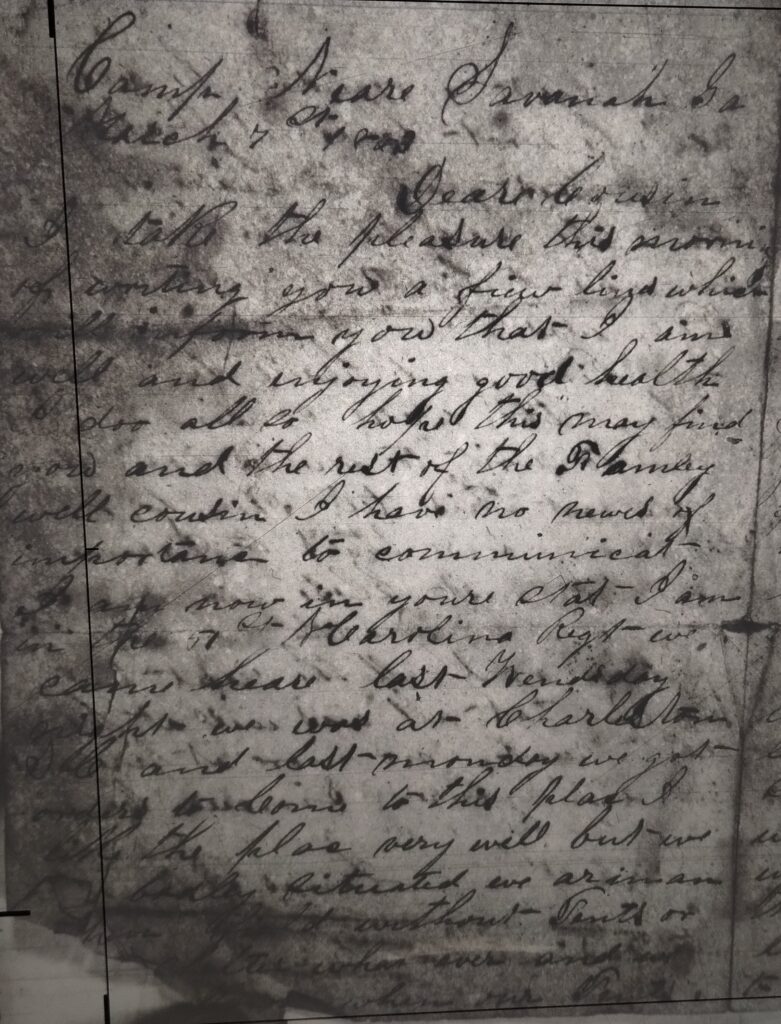 Camp Neare Savanah Ga
March 7 st
Deare Cousin
I take the pleasure this morni
of writing you a fiew lins which
from you that I am
well and enjoying good health
I doo all so hope this may find
you and the rest of the Famley
well cousin I have no newes of
importanc to communicat
I am now in youre stat I am
in the st N Carolina Regt we
came heare last Wendsday
night we was at Charleston
S C and last monday we got
orders to come to this plac I
like the plac very well but we
badley situated we ar in an
without Tents or
ever and we
when our